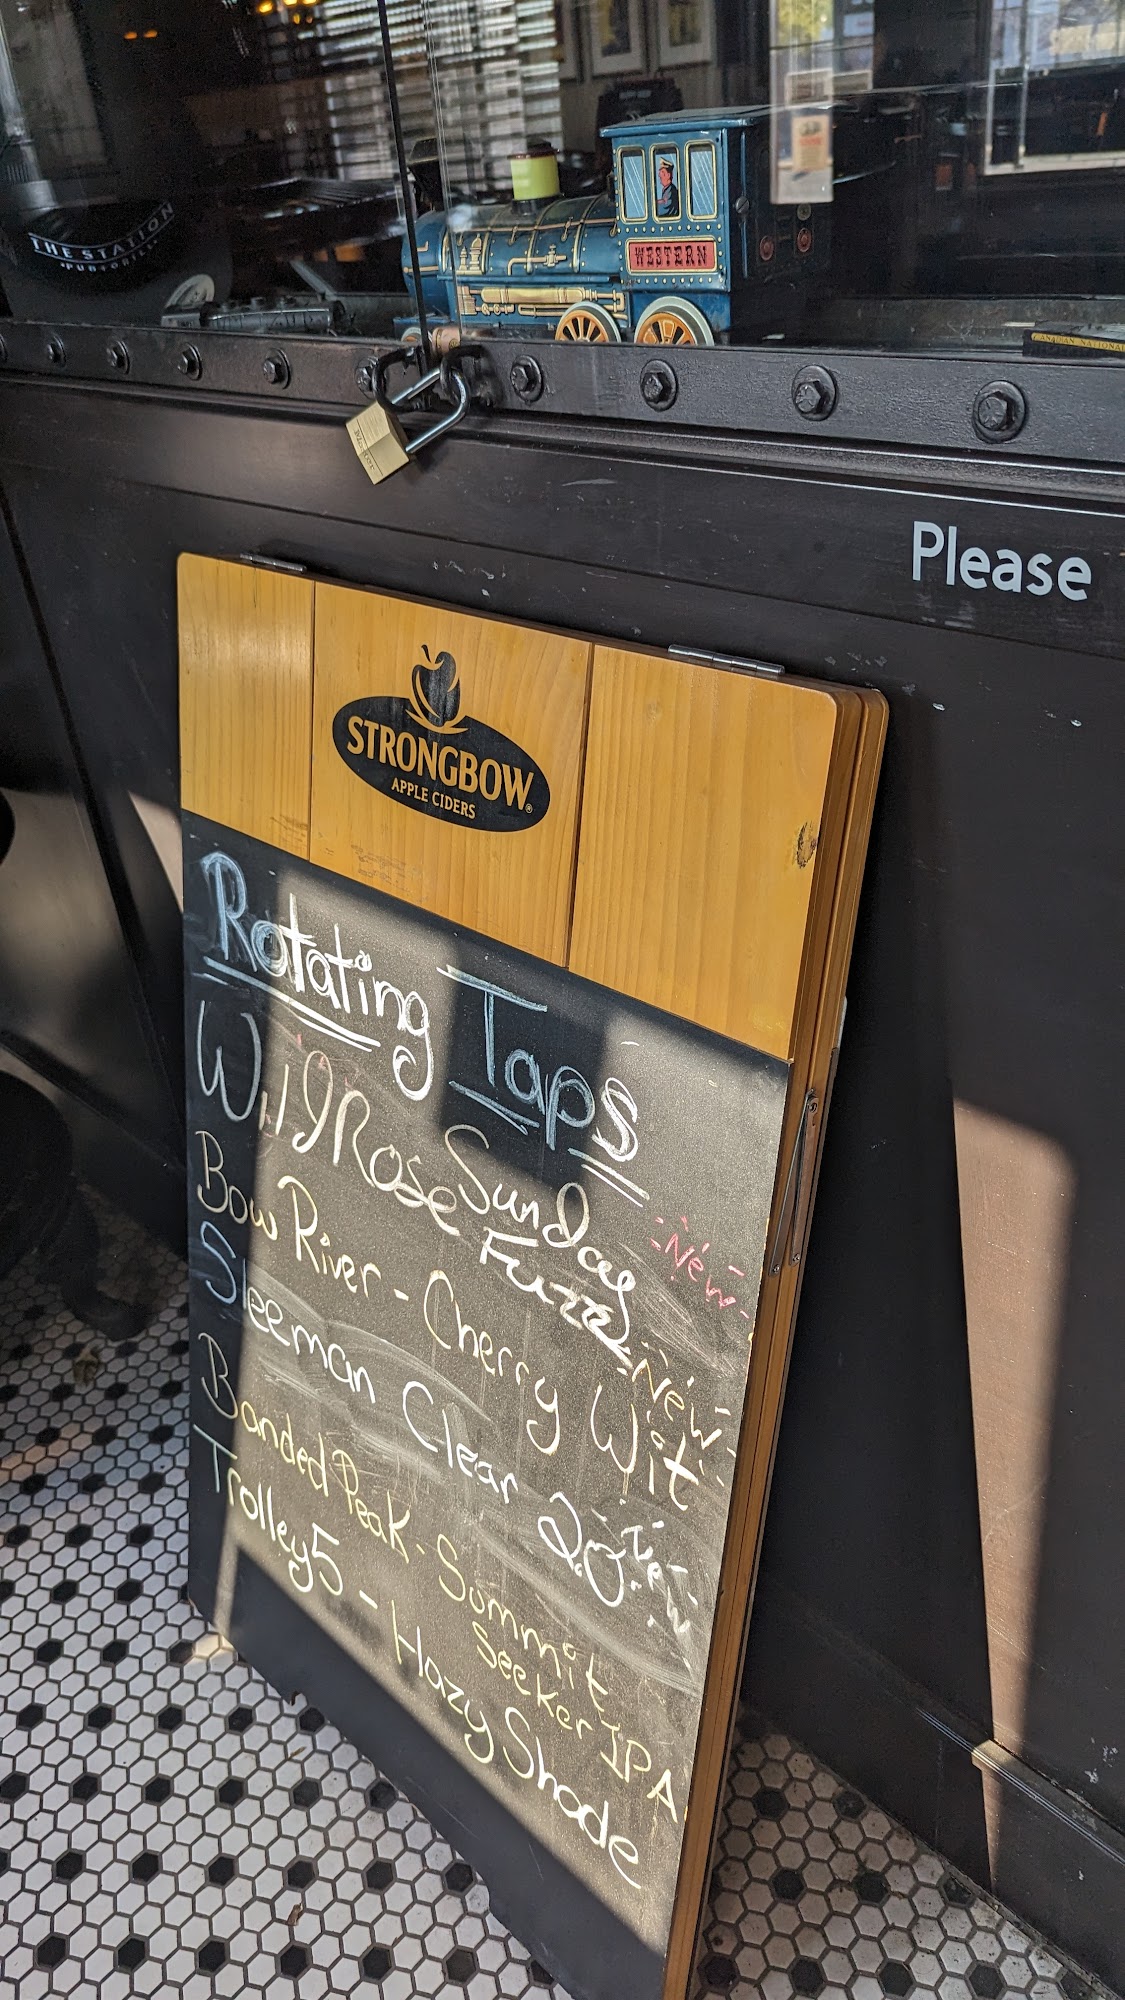 THE STATION
PUB & GRILL
WESTERN
CANADIAN NATIONAL
Please
STRONGBOW®
APPLE CIDERS
Rotating Taps
Wild Rose Sunday Fuzz New
Bow River - Cherry Wit New
Sleeman Clear 2.0 New
Banded Peak - Summit
Seeker IPA
Trolley 5 - Hazy Shade